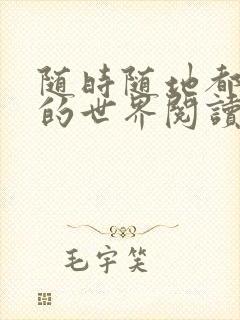 随时随地都
的世界閱讀
毛宇笑